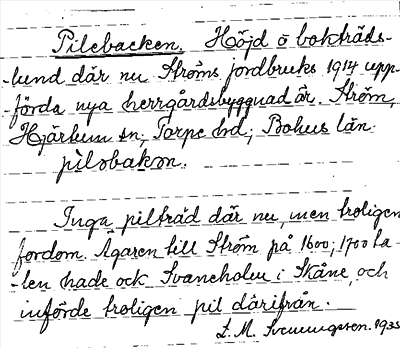 Pilebacken. Höjd o bokträds-
-lund där nu Ströms jordbruks 1914 upp-
-förda nya herrgårdsbyggnad är. Ström,
Hjärtum sn; Torpe hd; Bohus län.
pìləbakən.
Inga pilträd där nu, men troligen
fordom. Ägaren till Ström på 1600; 1700 ta-
-len hade ock Svaneholm i Skåne, och
införde troligen pil därifrån.
L. M. Svenungsson. 1935